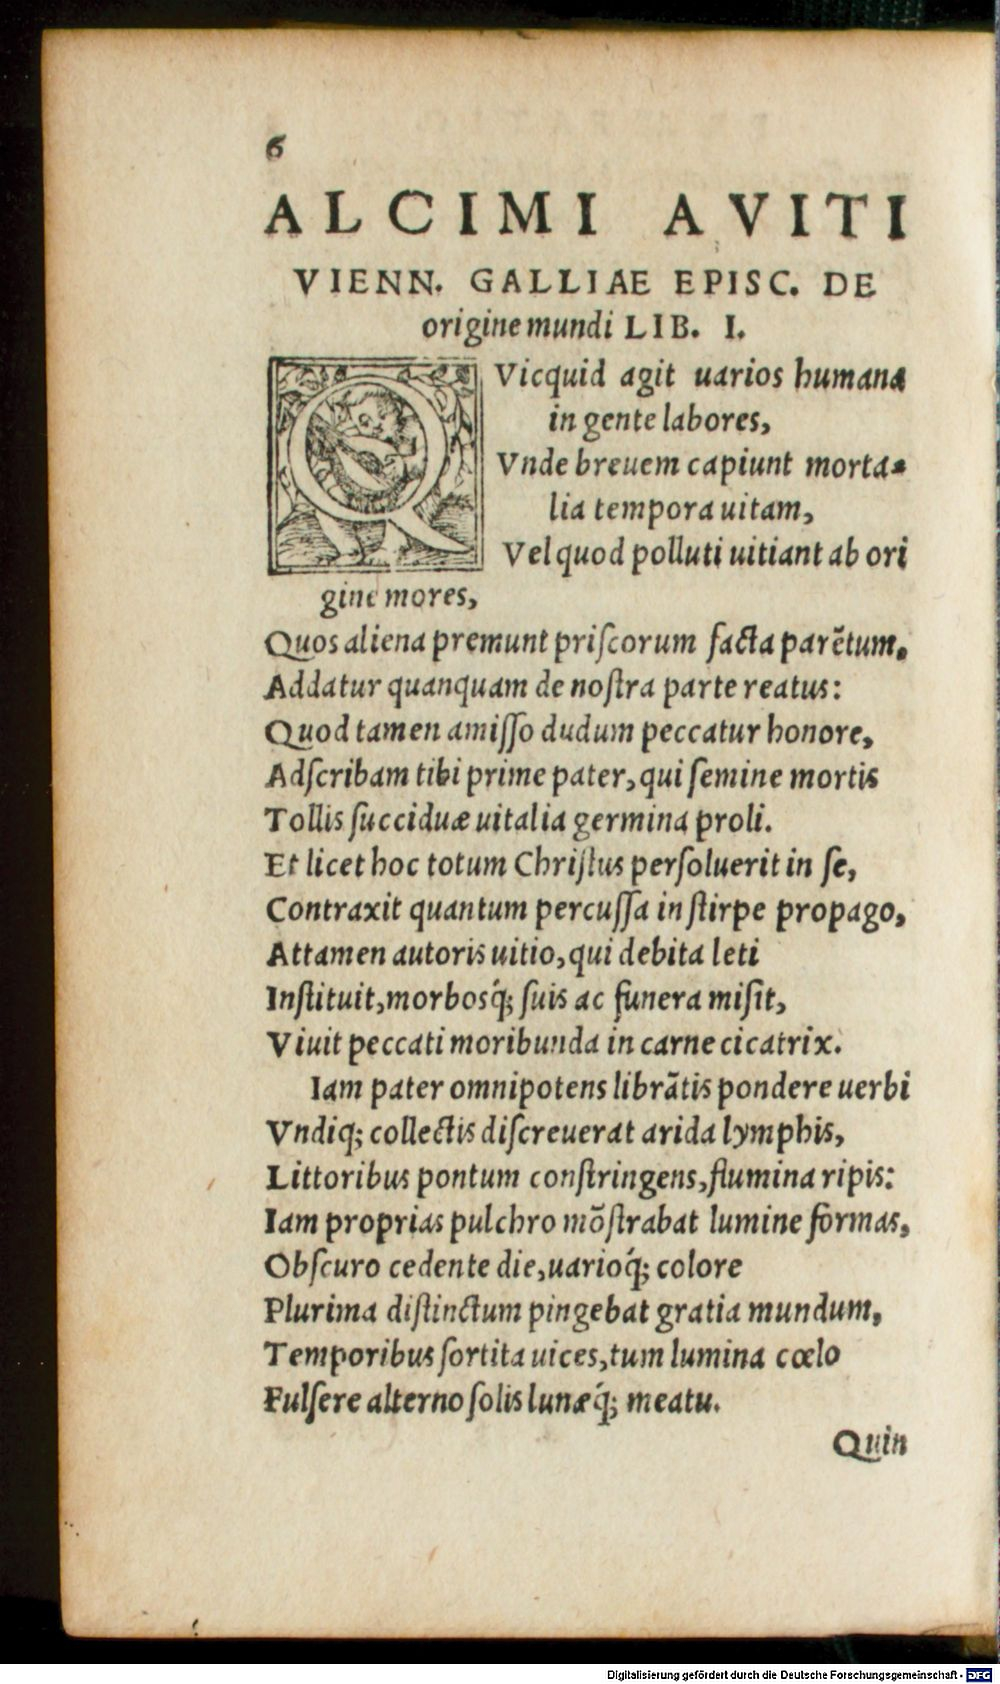 6
ALCIMI AVITI
VIENN. GALLIAE EPISC. DE
origine mundi LIB. I.
QVicquid agit uarios humana
in gente labores,
Vnde breuem capiunt morta-
lia tempora uitam,
Vel quod polluti uitiant ab ori
gine mores,
Quos aliena premunt priſcorum facta parẽtum.
Addatur quanquam de noſtra parte reatus:
Quod tamen amiſſo dudum peccatur honore,
Adſcribam tibi prime pater, qui ſemine mortis
Tollis ſucciduæ uitalia germina proli.
Et licet hoc totum Chriſtus perſoluerit in ſe,
Contraxit quantum percuſſa in ſtirpe propago,
Attamen autoris uitio, qui debita leti
Inſtituit, morbosq́; ſuis ac funera miſit,
Viuit peccati moribunda in carne cicatrix.
Iam pater omnipotens librãtis pondere uerbi
Vndiq; collectis diſcreuerat arida lymphis,
Littoribus pontum conſtringens, flumina ripis:
Iam proprias pulchro mõſtrabat lumine formas,
Obſcuro cedente die, uarioq́; colore
Plurima diſtinctum pingebat gratia mundum,
Temporibus ſortita uices, tum lumina cœlo
Fulſere alterno ſolis lunæq́; meatu.
Quin
Digitalisierung gefördert durch die Deutsche Forschungsgemeinschaft - DFG